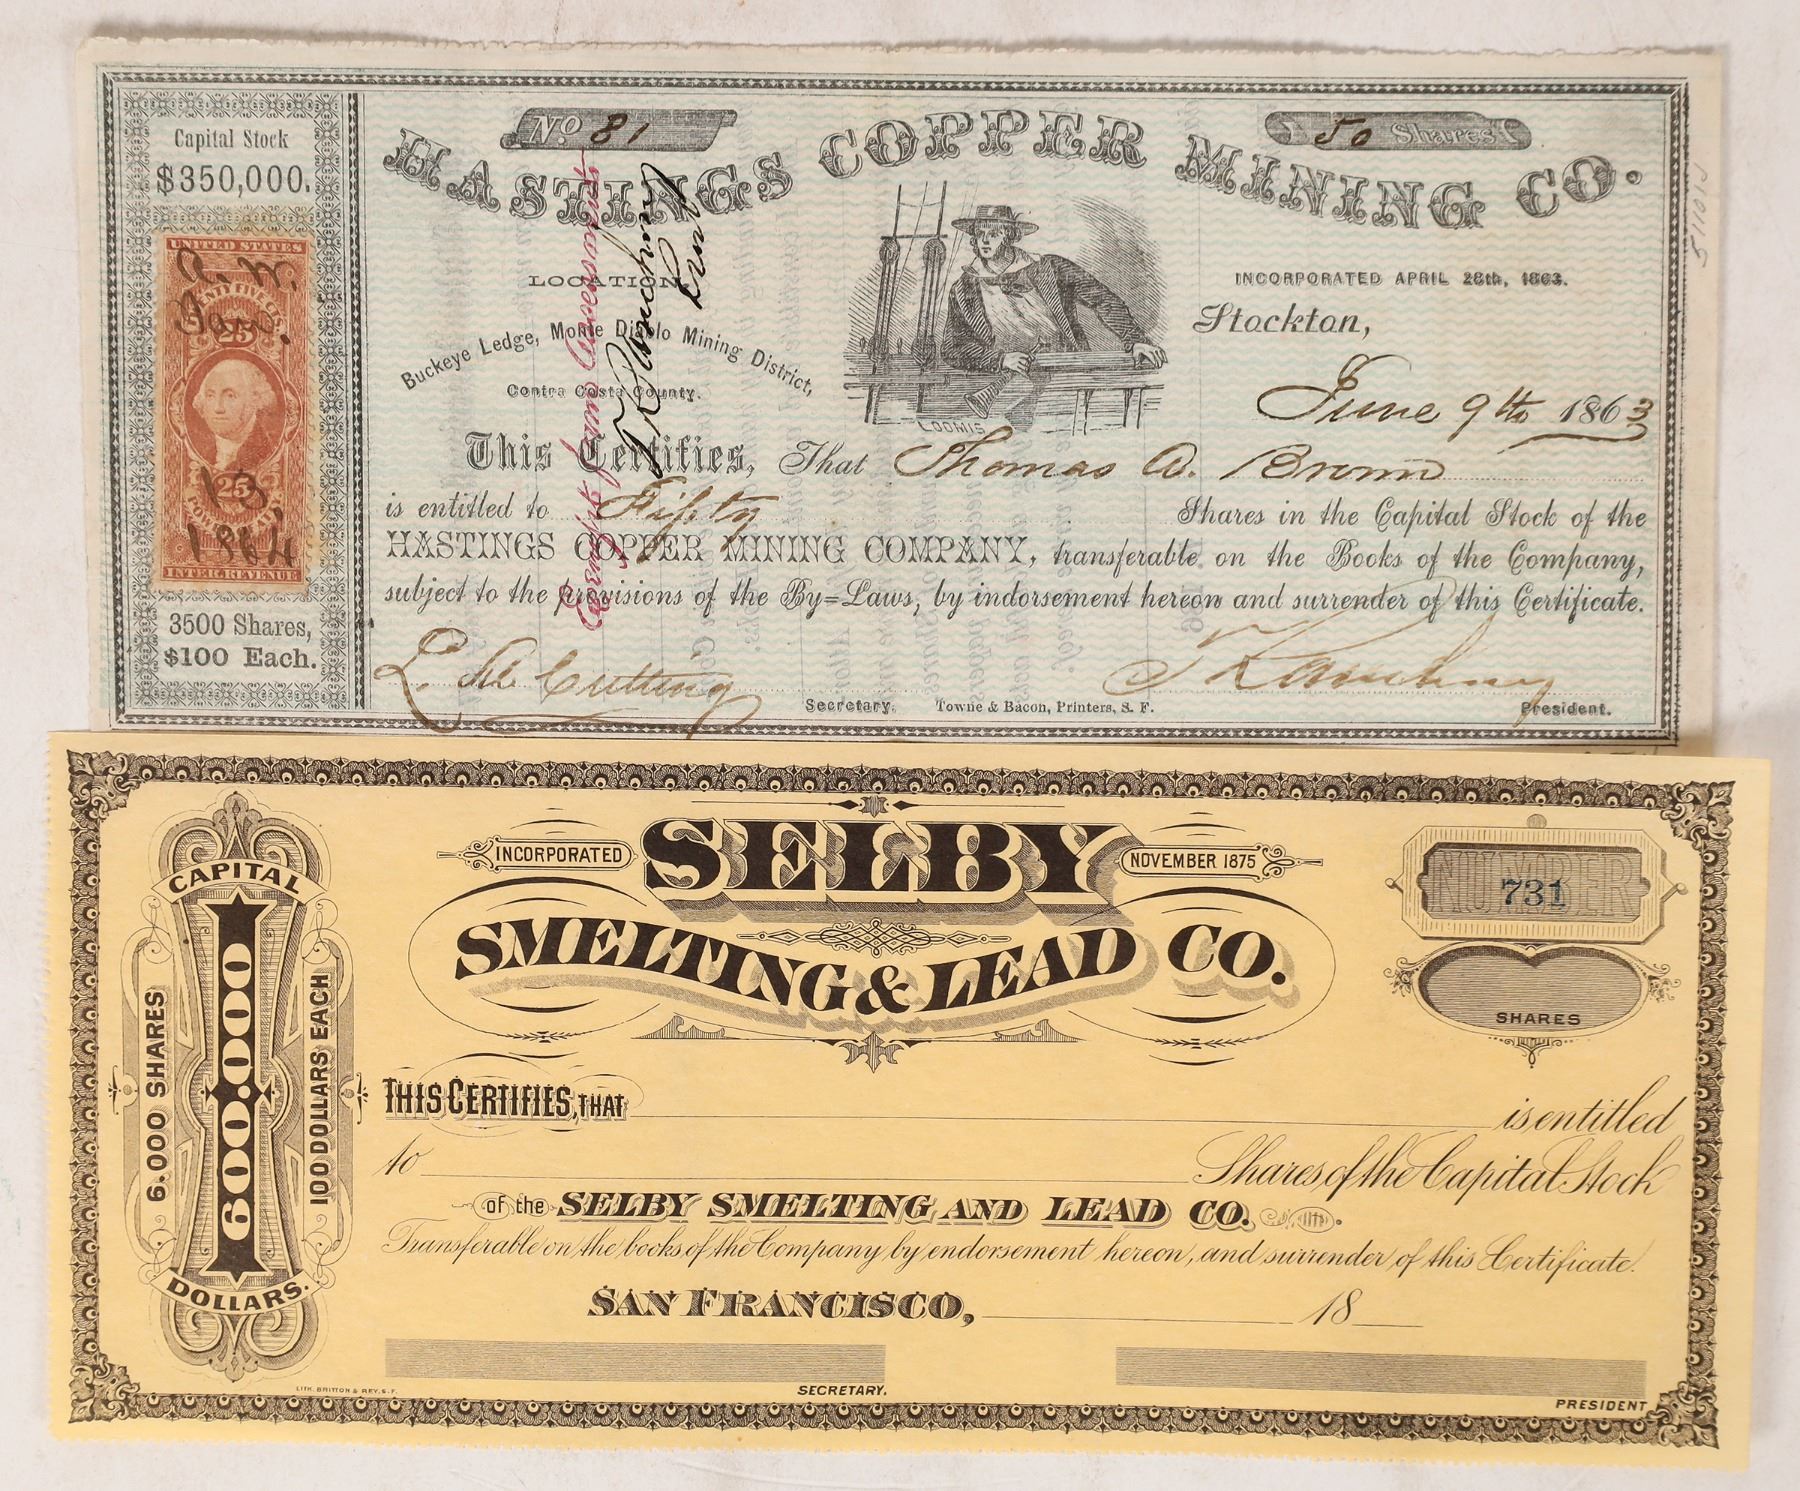 No. 81
50 Shares
HASTINGS COPPER MINING CO.
Capital Stock
$350,000.
UNITED STATES
25
25
INTER. REVENUE
13,
1864
3500 Shares,
$100 Each.
LOCATION
Buckeye Ledge, Monte Diablo Mining District,
Contra Costa County.
Exempt from Assessments
LOOMIS
INCORPORATED APRIL 28th, 1863.
Stockton,
June 9th 1863
This Certifies, That Thomas A. Brown
is entitled to Fifty Shares in the Capital Stock of the
HASTINGS COPPER MINING COMPANY, transferable on the Books of the Company,
subject to the provisions of the By=Laws, by indorsement hereon and surrender of this Certificate.
Cutting
Secretary. Towne & Bacon, Printers, S. F. President.
INCORPORATED SELBY NOVEMBER 1875
SMELTING & LEAD CO.
NUMBER
731
SHARES
CAPITAL
600.000
DOLLARS.
6.000 SHARES
100 DOLLARS EACH
THIS CERTIFIES, THAT is entitled
to Shares of the Capital Stock
of the SELBY SMELTING AND LEAD CO.
Transferable on the books of the Company by endorsement hereon, and surrender of this Certificate.
SAN FRANCISCO, 18
LITH. BRITTON & REY, S. F.
SECRETARY.
PRESIDENT